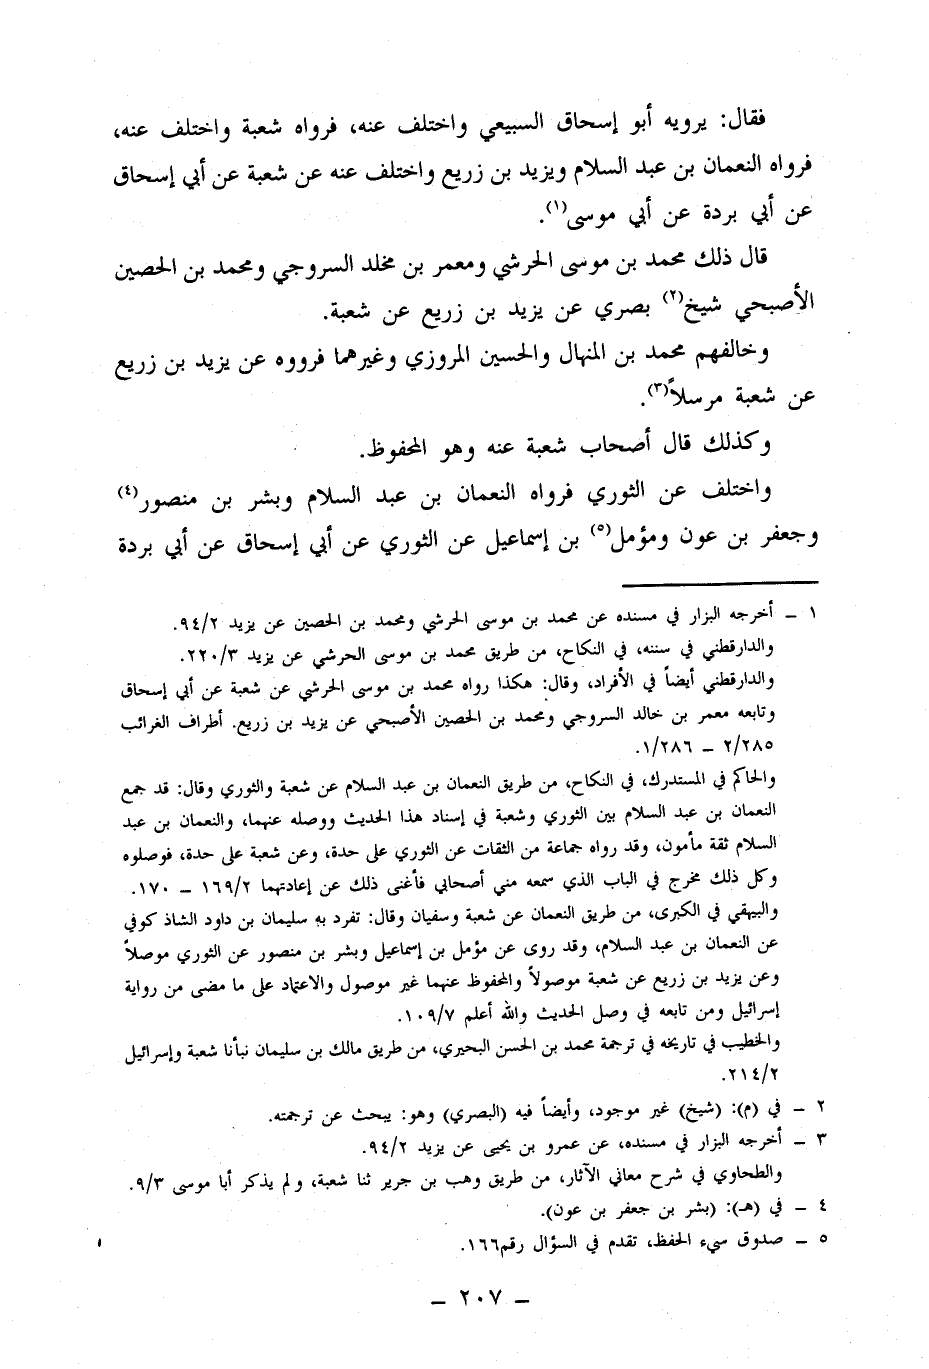 فقال: يرويه أبو إسحاق السبيعي واختلف عنه، فرواه شعبة واختلف عنه،
فرواه النعمان بن عبد السلام ويزيد بن زريع واختلف عنه عن شعبة عن أبي إسحاق
عن أبي بردة عن أبي موسى(١).
قال ذلك محمد بن موسى الحرشي ومعمر بن مخلد السروجي ومحمد بن الحصين
الأصبحي شيخ(٢) بصري عن يزيد بن زريع عن شعبة.
وخالفهم محمد بن المنهال والحسين المروزي وغيرهما فرووه عن يزيد بن زريع
عن شعبة مرسلاً(٣).
وكذلك قال أصحاب شعبة عنه وهو المحفوظ.
واختلف عن الثوري فرواه النعمان بن عبد السلام وبشر بن منصور(٤)
وجعفر بن عون ومؤمل(٥) بن إسماعيل عن الثوري عن أبي إسحاق عن أبي بردة
١ – أخرجه البزار في مسنده عن محمد بن موسى الحرشي ومحمد بن الحصين عن يزيد ٩٤/٢.
والدارقطني في سننه، في النكاح، من طريق محمد بن موسى الحرشي عن يزيد ٢٢٠/٣.
والدارقطني أيضاً في الأفراد، وقال: هكذا رواه محمد بن موسى الحرشي عن شعبة عن أبي إسحاق
وتابعه معمر بن خالد السروجي ومحمد بن الحصين الأصبحي عن يزيد بن زريع. أطراف الغرائب
٢/٢٨٥ – ١/٢٨٦.
والحاكم في المستدرك، في النكاح، من طريق النعمان بن عبد السلام عن شعبة والثوري وقال: قد جمع
النعمان بن عبد السلام بين الثوري وشعبة في إسناد هذا الحديث ووصله عنهما، والنعمان بن عبد
السلام ثقة مأمون، وقد رواه جماعة من الثقات عن الثوري على حدة، وعن شعبة على حدة، فوصلوه
وكل ذلك مخرج في الباب الذي سمعه مني أصحابي فأغنى ذلك عن إعادتهما ١٦٩/٢ – ١٧٠.
والبيهقي في الكبرى، من طريق النعمان عن شعبة وسفيان وقال: تفرد به سليمان بن داود الشاذ كوفي
عن النعمان بن عبد السلام، وقد روى عن مؤمل بن إسماعيل وبشر بن منصور عن الثوري موصلاً
وعن يزيد بن زريع عن شعبة موصولاً والمحفوظ عنهما غير موصول والاعتماد على ما مضى من رواية
إسرائيل ومن تابعه في وصل الحديث والله أعلم ١٠٩/٧.
والخطيب في تاريخه في ترجمة محمد بن الحسن البحيري، من طريق مالك بن سليمان نبأنا شعبة وإسرائيل
٢١٤/٢.
٢ – في (م): (شيخ) غير موجود، وأيضاً فيه (البصري) وهو: يبحث عن ترجمته.
٣ – أخرجه البزار في مسنده، عن عمرو بن يحيى عن يزيد ٩٤/٢.
والطحاوي في شرح معاني الآثار، من طريق وهب بن جرير ثنا شعبة، ولم يذكر أبا موسى ٩/٣.
٤ – في (هـ): (بشر بن جعفر بن عون).
٥ – صدوق سيء الحفظ، تقدم في السؤال رقم١٦٦.
– ٢٠٧ –